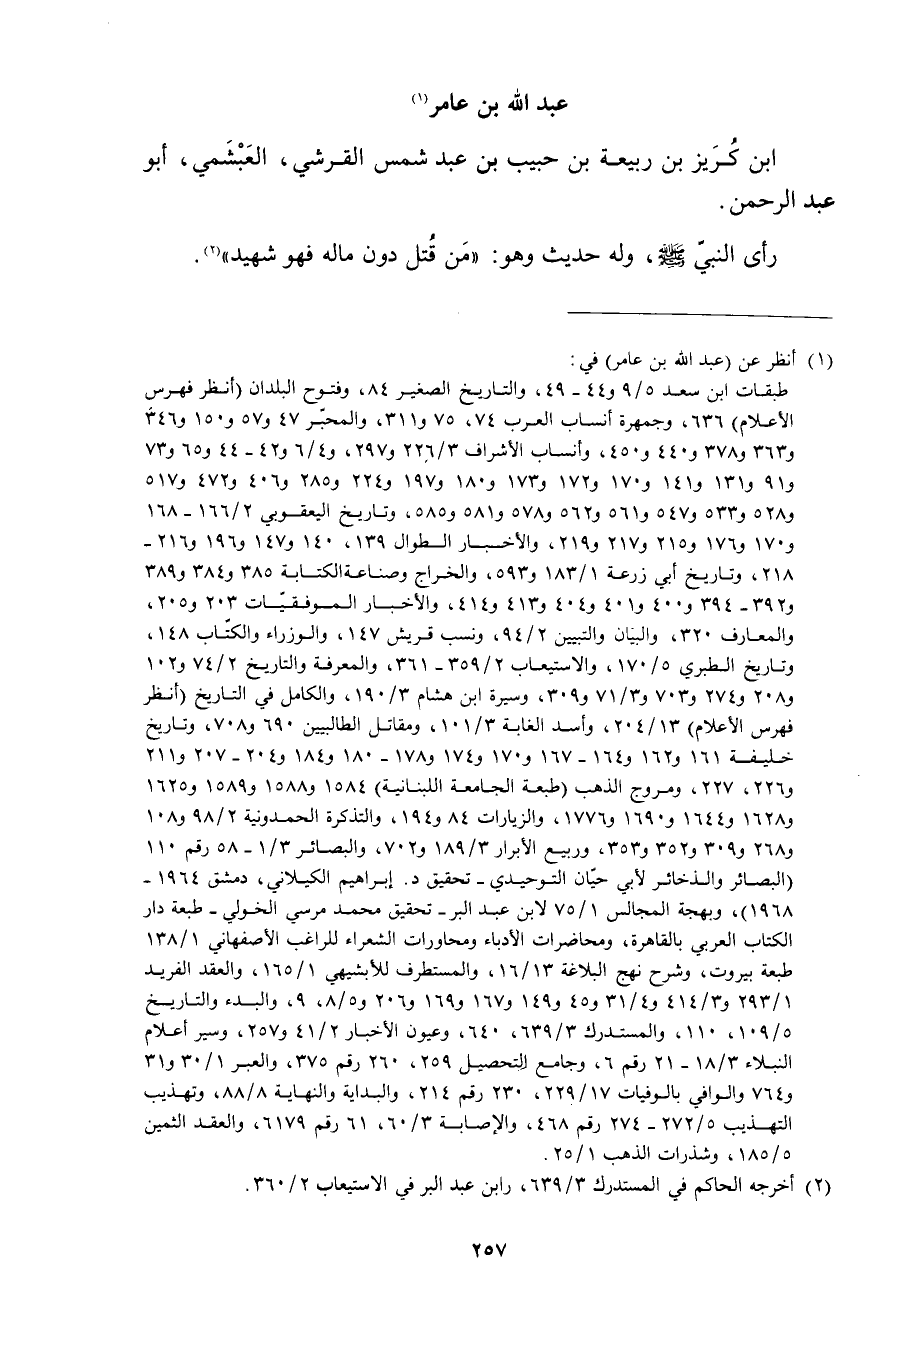 عبد الله بن عامر(١)
ابن كُرَيز بن ربيعة بن حبيب بن عبد شمس القرشي، العَبْشَمي، أبو
عبد الرحمن.
رأى النبيّ ﷺ، وله حديث وهو: «مَن قُتل دون ماله فهو شهيد»(٢).
(١) أنظر عن (عبد الله بن عامر) في:
طبقات ابن سعد ٩/٥ و٤٤ ـ ٤٩، والتاريخ الصغير ٨٤، وفتوح البلدان (أنظر فهرس
الأعلام) ٦٣٦، وجمهرة أنساب العرب ٧٤، ٧٥ و٣١١، والمحبّر ٤٧ و٥٧ و١٥٠ و٣٤٦
و٣٦٣ و٣٧٨ و٤٤٠ و٤٥٠، وأنساب الأشراف ٢٢٦/٣ و٢٩٧، و٦/٤ و٤٢ ـ ٤٤ و٦٥ و٧٣
و٩١ و١٣١ و١٤١ و١٧٠ و١٧٢ و١٧٣ و١٨٠ و١٩٧ و٢٢٤ و٢٨٥ و٤٠٦ و٤٧٢ و٥١٧
و٥٢٨ و٥٣٣ و٥٤٧ و٥٦١ و٥٦٢ و٥٧٨ و٥٨١ و٥٨٥، وتاريخ اليعقوبي ١٦٦/٢ ـ ١٦٨
و١٧٠ و١٧٦ و٢١٥ و٢١٧ و٢١٩، والأخبار الطوال ١٣٩، ١٤٠ و١٤٧ و١٩٦ و٢١٦ ـ
٢١٨، وتاريخ أبي زرعة ١٨٣/١ و٥٩٣، والخراج وصناعة الكتابة ٣٨٥ و٣٨٤ و٣٨٩
و٣٩٢ ـ ٣٩٤ و٤٠٠ و٤٠١ و٤٠٤ و٤١٣ و٤١٤، والأخبار الموفقيّات ٢٠٣ و٢٠٥،
والمعارف ٣٢٠، والبيان والتبيين ٩٤/٢، ونسب قريش ١٤٧، والوزراء والكتّاب ١٤٨،
وتاريخ الطبري ١٧٠/٥، والاستيعاب ٣٥٩/٢ ـ ٣٦١، والمعرفة والتاريخ ٧٤/٢ و١٠٢
و٢٠٨ و٢٧٤ و٧٠٣ و٧١/٣ و٣٠٩، وسيرة ابن هشام ١٩٠/٣، والكامل في التاريخ (أنظر
فهرس الأعلام) ٢٠٤/١٣، وأسد الغابة ١٠١/٣، ومقاتل الطالبيين ٦٩٠ و٧٠٨، وتاريخ
خليفة ١٦١ و١٦٢ و١٦٤ ـ ١٦٧ و١٧٠ و١٧٤ و١٧٨ ـ ١٨٠ و١٨٤ و٢٠٤ ـ ٢٠٧ و٢١١
و٢٢٦، ٢٢٧، ومروج الذهب (طبعة الجامعة اللبنانية) ١٥٨٤ و١٥٨٨ و١٥٨٩ و١٦٢٥
و١٦٢٨ و١٦٤٤ و١٦٩٠ و١٧٧٦، والزيارات ٨٤ و١٩٤، والتذكرة الحمدونية ٩٨/٢ و١٠٨
و٢٦٨ و٣٠٩ و٣٥٢ و٣٥٣، وربيع الأبرار ١٨٩/٣ و٧٠٢، والبصائر ١/٣ ـ ٥٨ رقم ١١٠
(البصائر والذخائر لأبي حيّان التوحيدي ـ تحقيق د. إبراهيم الكيلاني، دمشق ١٩٦٤ ـ
١٩٦٨)، وبهجة المجالس ٧٥/١ لابن عبد البر ـ تحقيق محمد مرسي الخولي ـ طبعة دار
الكتاب العربي بالقاهرة، ومحاضرات الأدباء ومحاورات الشعراء للراغب الأصفهاني ١٣٨/١
طبعة بيروت، وشرح نهج البلاغة ١٦/١٣، والمستطرف للأبشيهي ١٦٥/١، والعقد الفريد
٢٩٣/١ و٤١٤/٣ و٣١/٤ و٤٥ و١٤٩ و١٦٧ و١٦٩ و٢٠٦ و٨/٥، ٩، والبدء والتاريخ
١٠٩/٥، ١١٠، والمستدرك ٦٣٩/٣، ٦٤٠، وعيون الأخبار ٤١/٢ و٢٥٧، وسير أعلام
النبلاء ١٨/٣ ـ ٢١ رقم ٦، وجامع التحصيل ٢٥٩، ٢٦٠ رقم ٣٧٥، والعبر ٣٠/١ و٣١
و٧٦٤ والوافي بالوفيات ٢٢٩/١٧، ٢٣٠ رقم ٢١٤، والبداية والنهاية ٨٨/٨، وتهذيب
التهذيب ٢٧٢/٥ ـ ٢٧٤ رقم ٤٦٨، والإصابة ٦٠/٣، ٦١ رقم ٦١٧٩، والعقد الثمين
١٨٥/٥، وشذرات الذهب ٢٥/١.
(٢) أخرجه الحاكم في المستدرك ٦٣٩/٣، رابن عبد البر في الاستيعاب ٣٦٠/٢.
٢٥٧